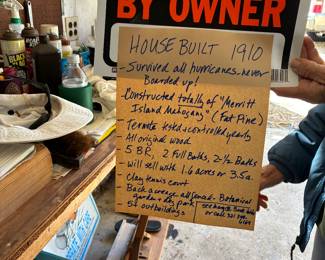 BY OWNER
HOUSE BUILT 1910
- Survived all hurricanes - never
Boarded up!
- Constructed totally of "Merritt
Island Mahogany" (Fat Pine)
- Termite tested + controlled yearly
- All original wood
- 5 BR, 2 Full Baths, 2-1/2 Baths
- Will sell with 1.6 acres or 3.5 a.
- Clay tennis court
- Back acreage all fenced - Botanical
garden + dog park
- 5+ outbuildings
or call 321
BLACK